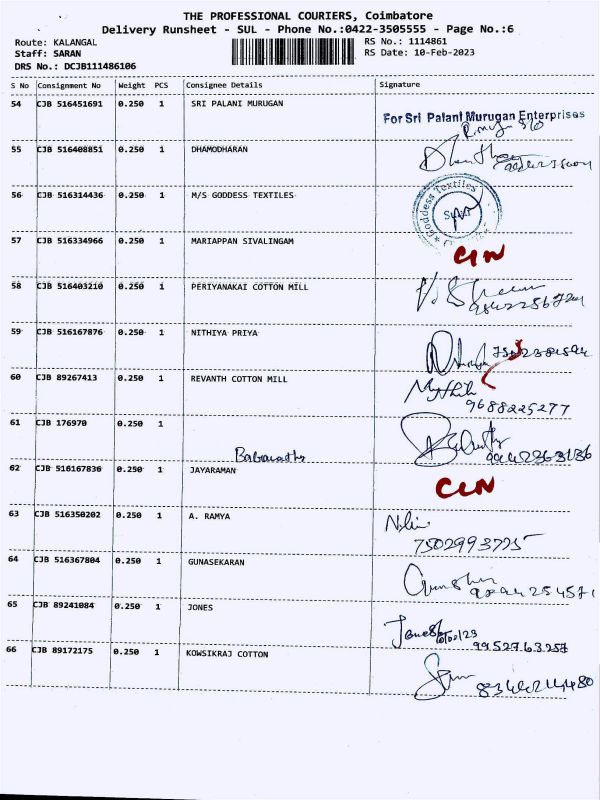 THE PROFESSIONAL COURIERS, Coimbatore
Delivery Runsheet - SUL - Phone No.:0422-3505555 - Page No.:6
Route: KALANGAL
RS No.: 1114861
Staff: SARAN
RS Date: 10-Feb-2023
DRS No.: DCJB111486106
S No Consignment No Weight PCS Consignee Details Signature
54 CJB 516451691 0.250 1 SRI PALANI MURUGAN
For Sri Palani Murugan Enterprises
55 CJB 516408851 0.250 1 DHAMODHARAN
56 CJB 516314436 0.250 1 M/S GODDESS TEXTILES
Goddess Textiles
57 CJB 516334966 0.250 1 MARIAPPAN SIVALINGAM
58 CJB 516403210 0.250 1 PERIYANAKAI COTTON MILL
59 CJB 516167876 0.250 1 NITHIYA PRIYA
60 CJB 89267413 0.250 1 REVANTH COTTON MILL
Mythili
9688225277
61 CJB 176970 0.250 1
62 CJB 516167836 0.250 1 JAYARAMAN
CLN
63 CJB 516350202 0.250 1 A. RAMYA
7502993725
64 CJB 516367804 0.250 1 GUNASEKARAN
65 CJB 89241084 0.250 1 JONES
9952763257
66 CJB 89172175 0.250 1 KOWSIKRAJ COTTON